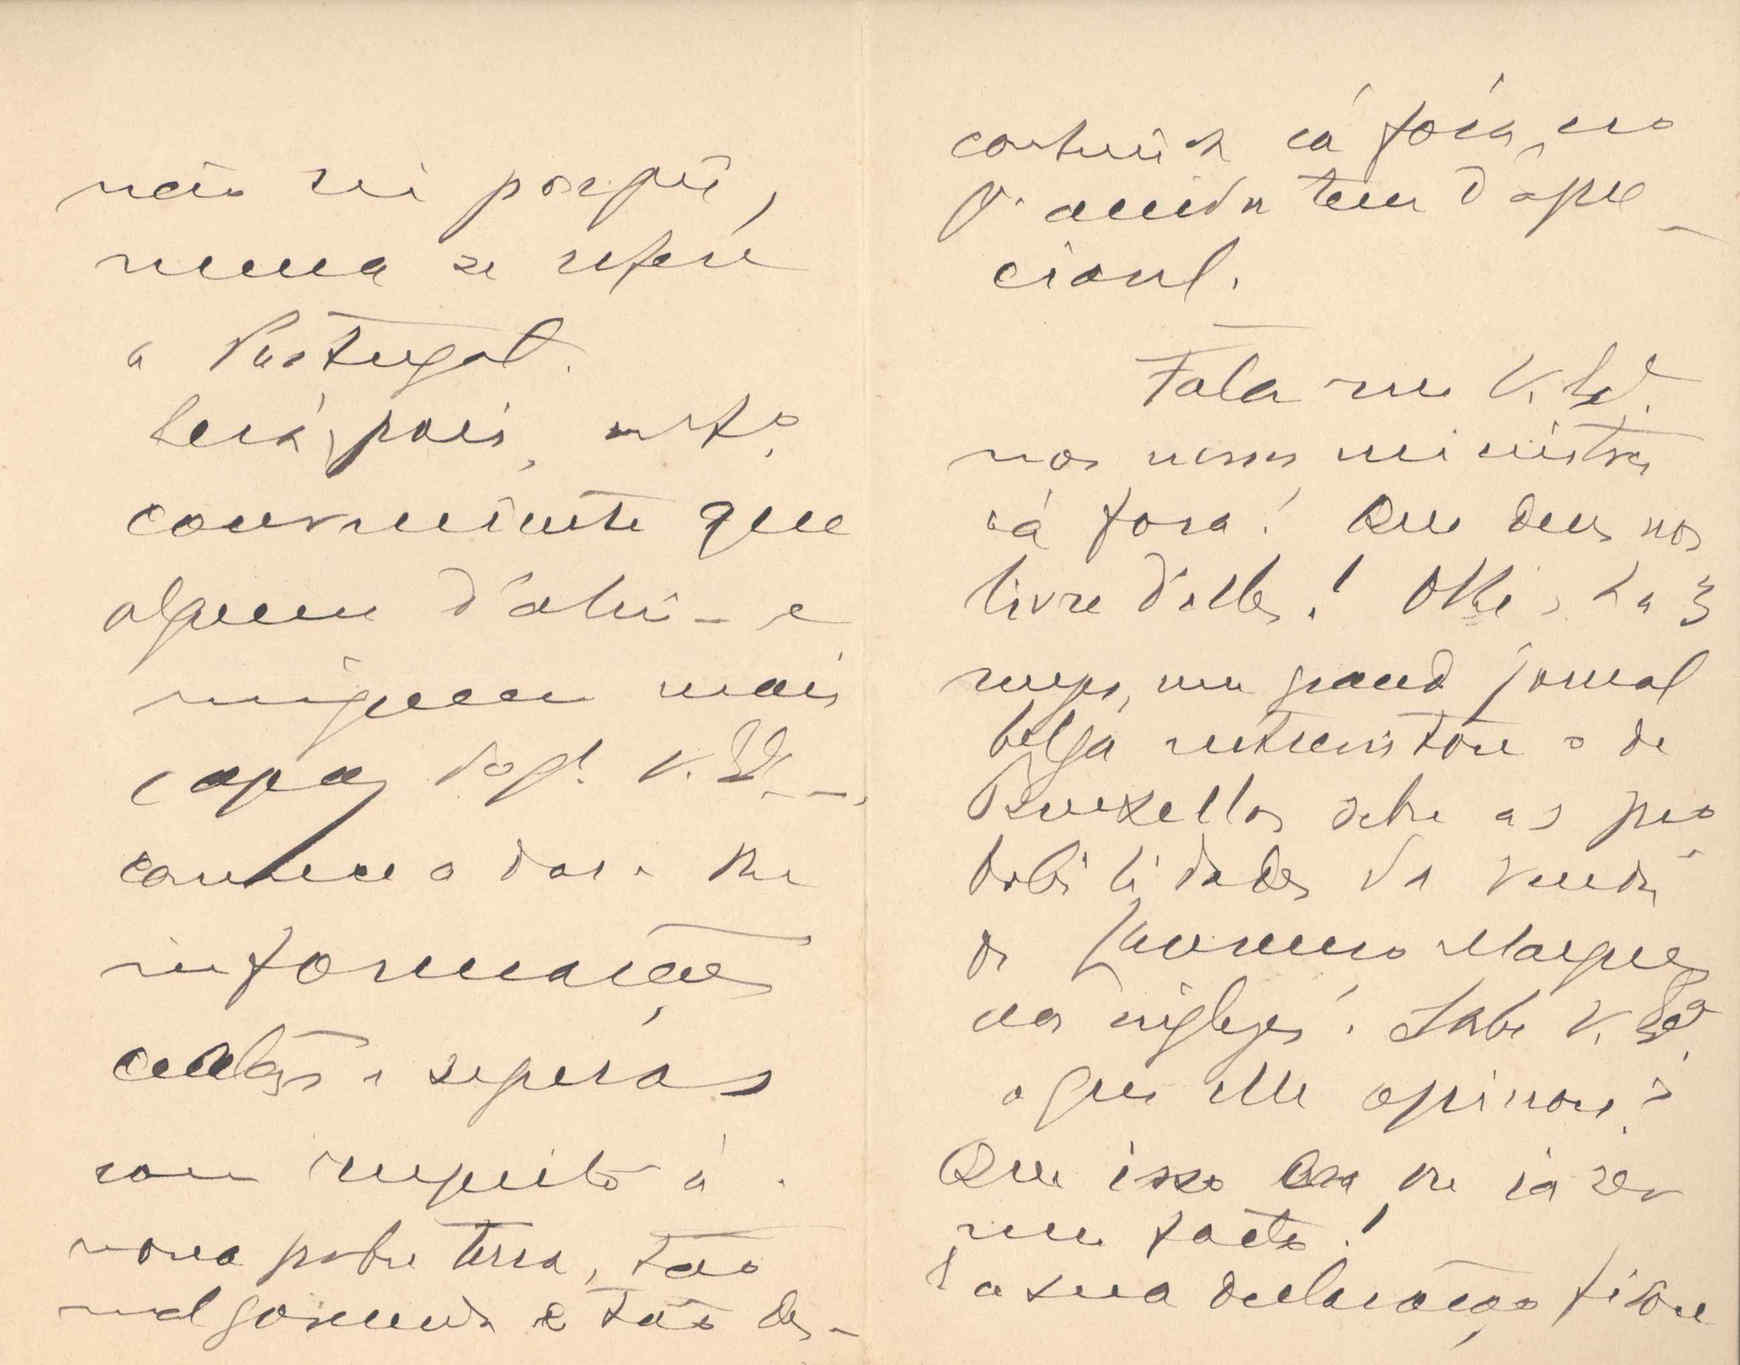 não sei porquê,
nunca se refere
a Portugal.
Será, pois, muito
conveniente que
alguem d'ahi - e
ninguem mais
capaz do q. V. Ex.ª -
comece a dar-lhe
informações
certas e seguras
com respeito á
nossa pobre terra, tão
mal governada e tão des-
conhecida cá fóra, no
q. ainda tem d'apre-
ciavel.
Fala-me V. Ex.ª
nos nossos ministros
cá fora! Que Deus nos
livre d'elles! Olhe, ha 3
mezes, um grande jornal
belga entrevistou o de
Bruxellas sobre as pro
babilidades da venda
de Lourenço Marques
aos inglezes. Sabe V. Ex.ª
o que elle opinou?
Que isso era ou ia ser
um facto!
E a sua declaração ficou